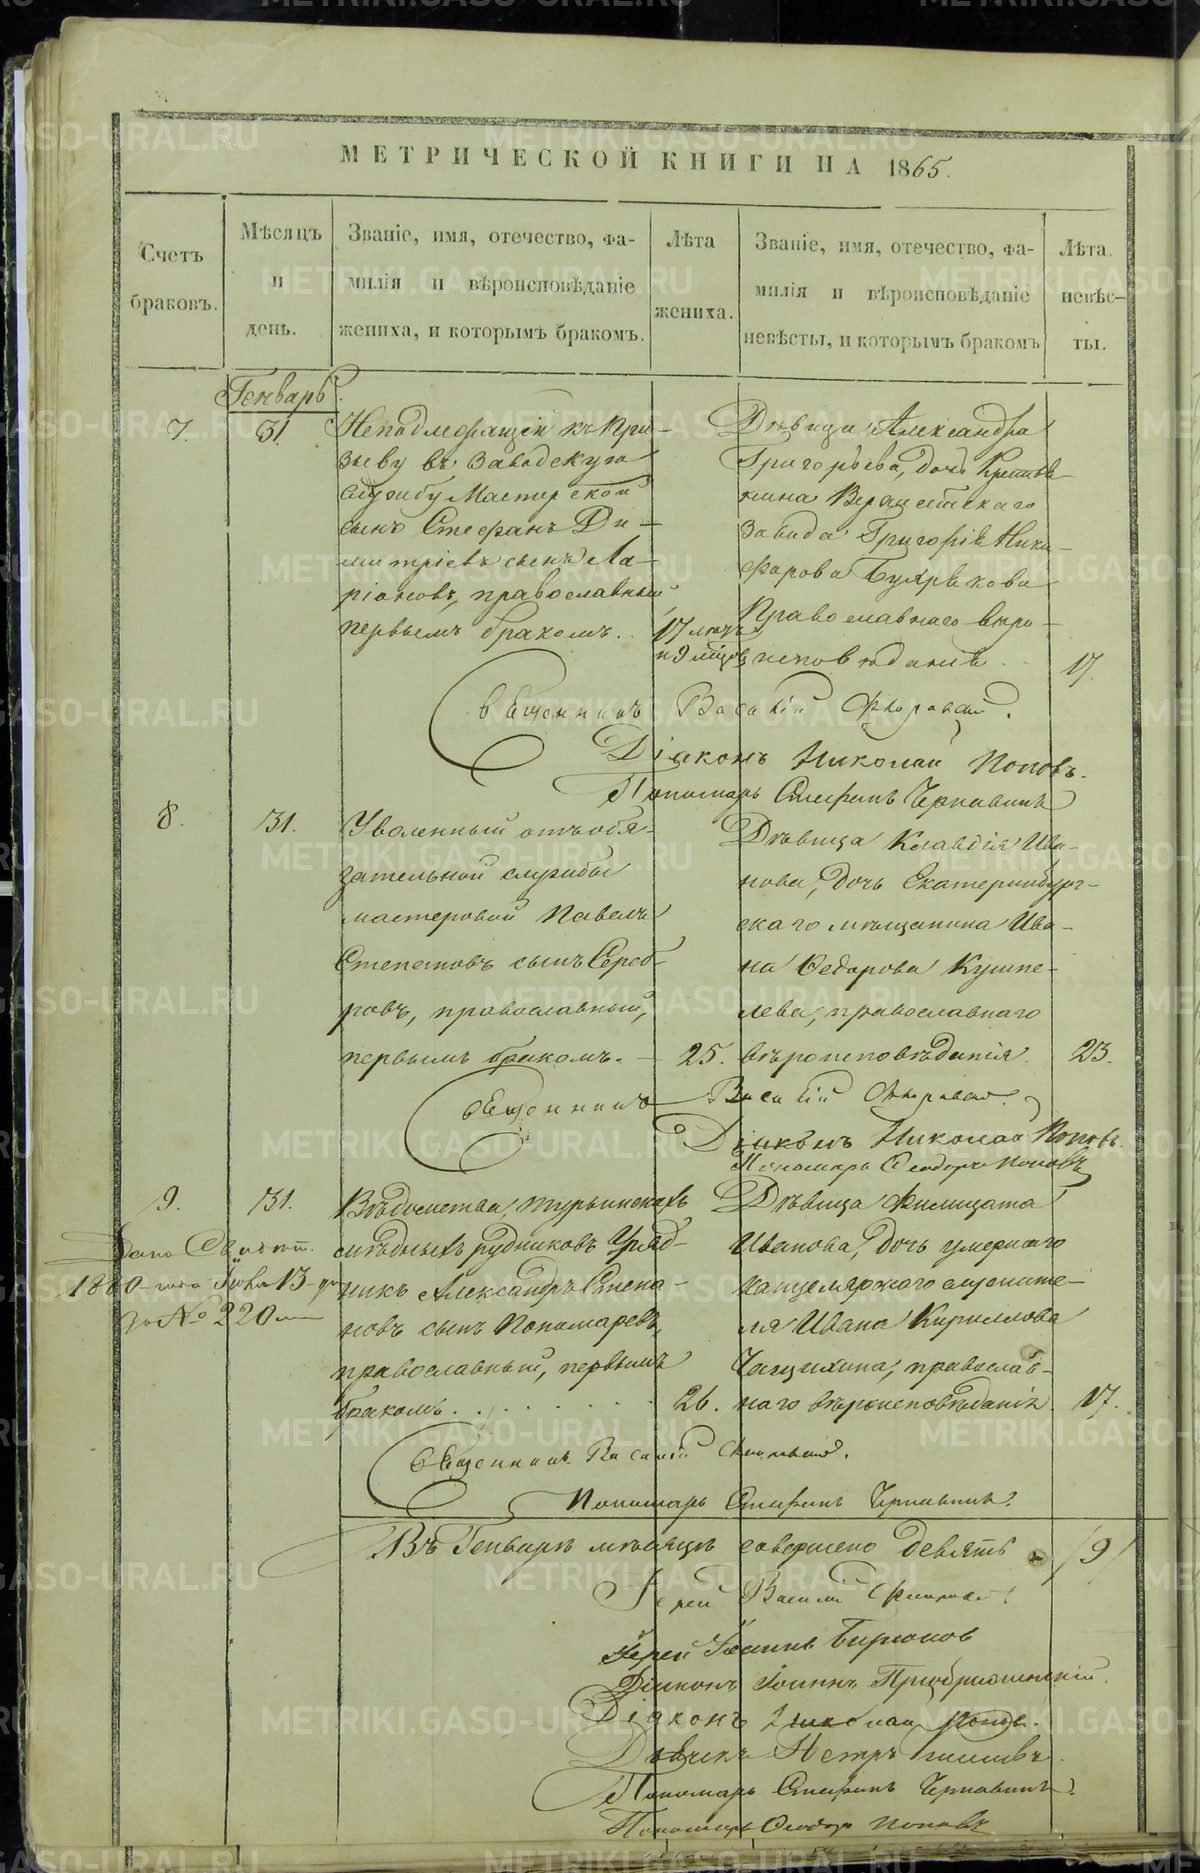 МЕТРИЧЕСКОЙ КНИГИ НА 1865.
Счетъ браковъ.
Мѣсяцъ и день.
Званіе, имя, отечество, фа-
милія и вѣроисповѣданіе
жениха, и которымъ бракомъ.
Лѣта жениха.
Званіе, имя, отечество, фа-
милія и вѣроисповѣданіе
невѣсты, и которымъ бракомъ
Лѣта невѣс-
ты.
Генварь
7. 31.
Неподлежащій къ при-
зыву въ заводскую
службу Мастерской
сынъ Стефанъ Ди-
митріевъ сынъ Ла-
ріоновъ, православный
первымъ бракомъ..
17 лѣтъ
и 9 мѣсяц.
Дѣвица Александра
Григорьева, дочь Крестья-
нина
завода Григорія Ники-
форова Бухрякова
Православнаго вѣро-
исповѣданія..
17.
Священникъ Василій
Діаконъ Николай Поповъ.
Пономарь Стефанъ Чернавинъ
8. 31.
Уволенный отъ обя-
зательной службы
мастеровой Павелъ
Степановъ сынъ Сереб-
ровъ, православный,
первымъ бракомъ. —
25.
Дѣвица Клавдія Ива-
нова, дочь Екатеринбург-
скаго мѣщанина Ива-
на Федорова Кушпе-
лева, православнаго
вѣроисповѣданія.
23.
Священникъ Василій
Діаконъ Николай Поповъ.
Пономарь Ѳеодоръ Поповъ
9. 31.
Дано Свидѣт.
1880 года Іюня 13 дн
за № 220
Вѣдомства Турьинскихъ
мѣдныхъ рудниковъ Уряд-
никъ Александръ Степа-
новъ сынъ Пономаревъ
православный, первымъ
бракомъ.......
26.
Дѣвица Филицата
Иванова, дочь умершаго
Канцелярскаго служите-
ля Ивана Кириллова
Чащихина, православ-
наго вѣроисповѣданія.
17.
Священникъ Василій
Пономарь Стефанъ Чернавинъ.
Въ Генварѣ мѣсяцѣ совершено девять /9/
Іерей Василій
Іерей Іоаннъ Бирюков
Діаконъ Іоаннъ Преображенскій.
Діаконъ Николай Поповъ.
Дьячекъ Петръ
Пономарь Стефанъ Чернавинъ.
Пономарь Ѳеодоръ Поповъ
METRIKI.GASO-URAL.RU